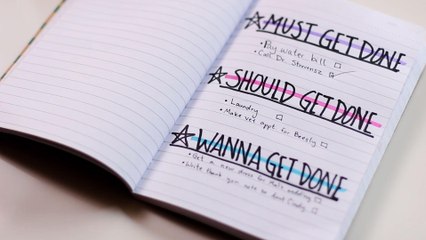 MUST GET DONE
• Pay water bill
• Call Dr. Stevensz
SHOULD GET DONE
• Laundry
• Make vet appt for Beesly
WANNA GET DONE
• Get a new dress for Mel's wedding
• Write thank you note to Aunt Cindy